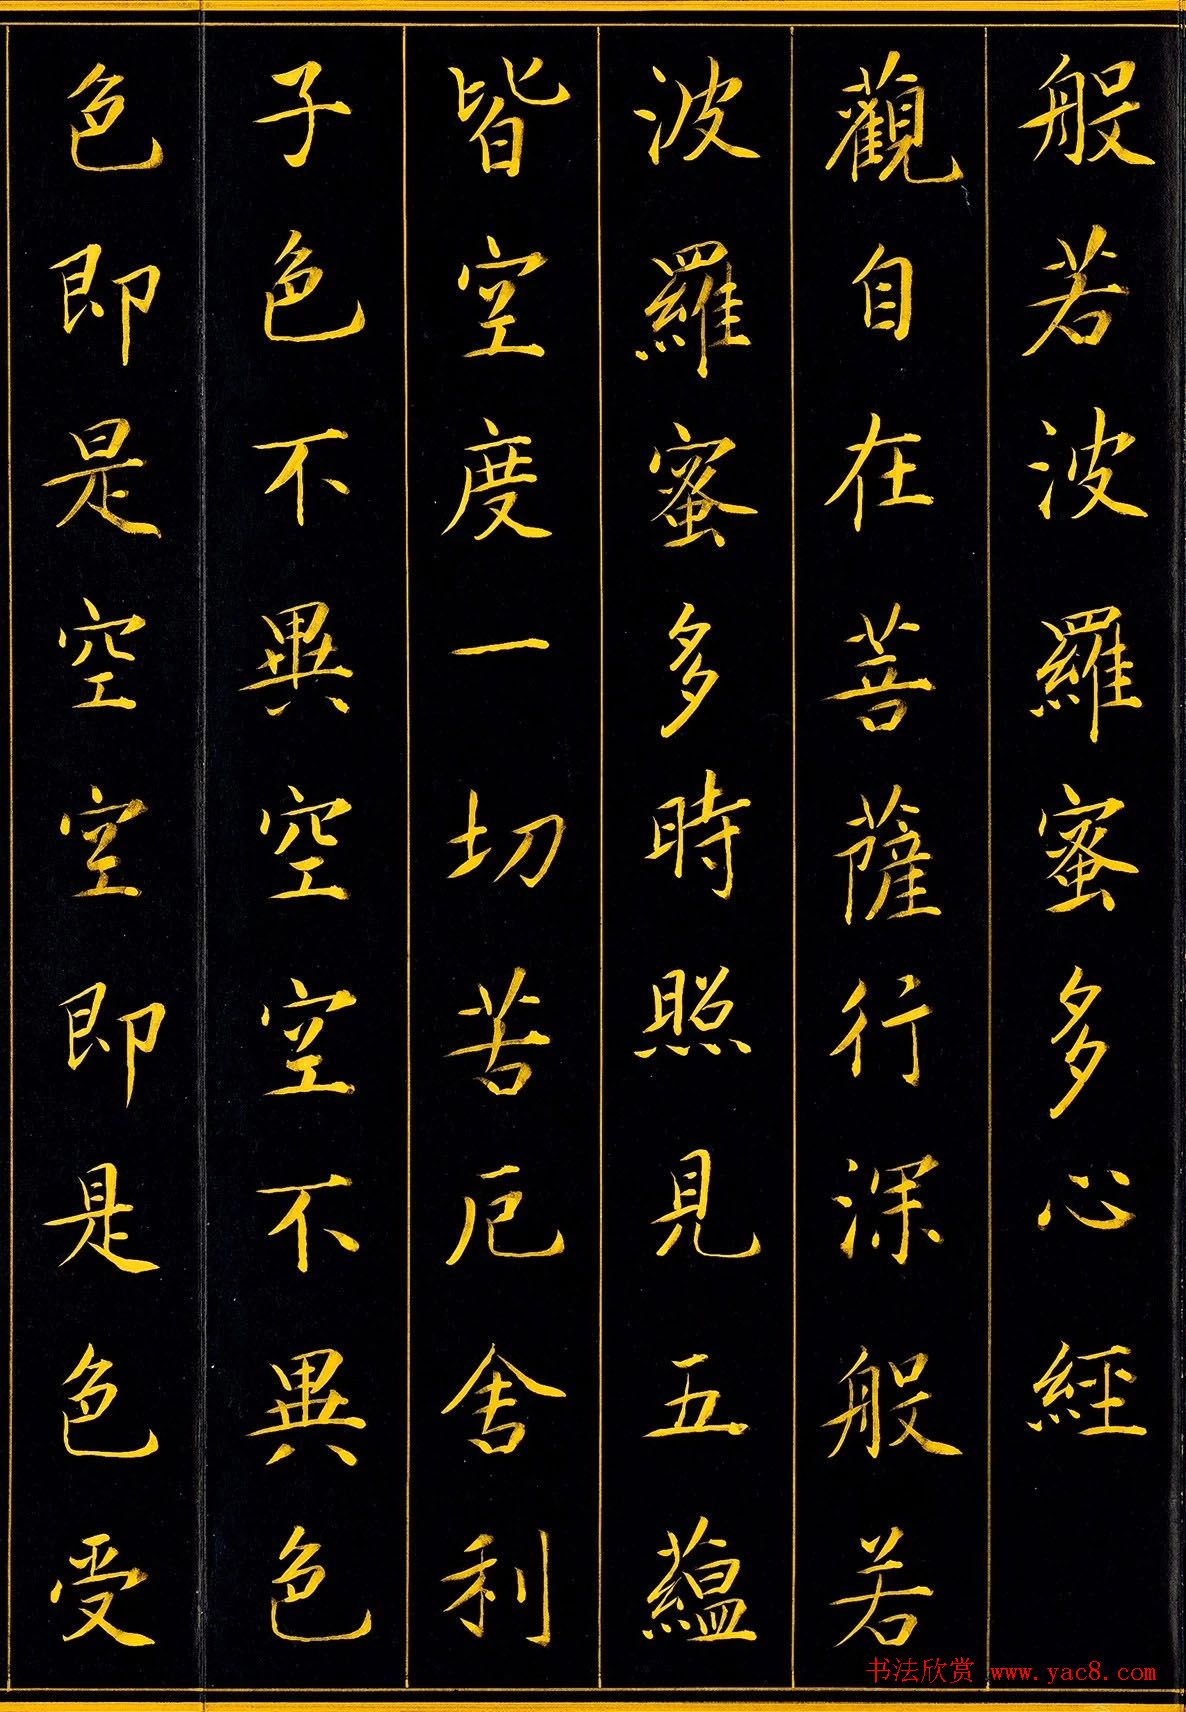 般若波羅蜜多心經
觀自在菩薩行深般若
波羅蜜多時照見五蘊
皆空度一切苦厄舍利
子色不異空空不異色
色即是空空即是色受
书法欣赏 www.yac8.com